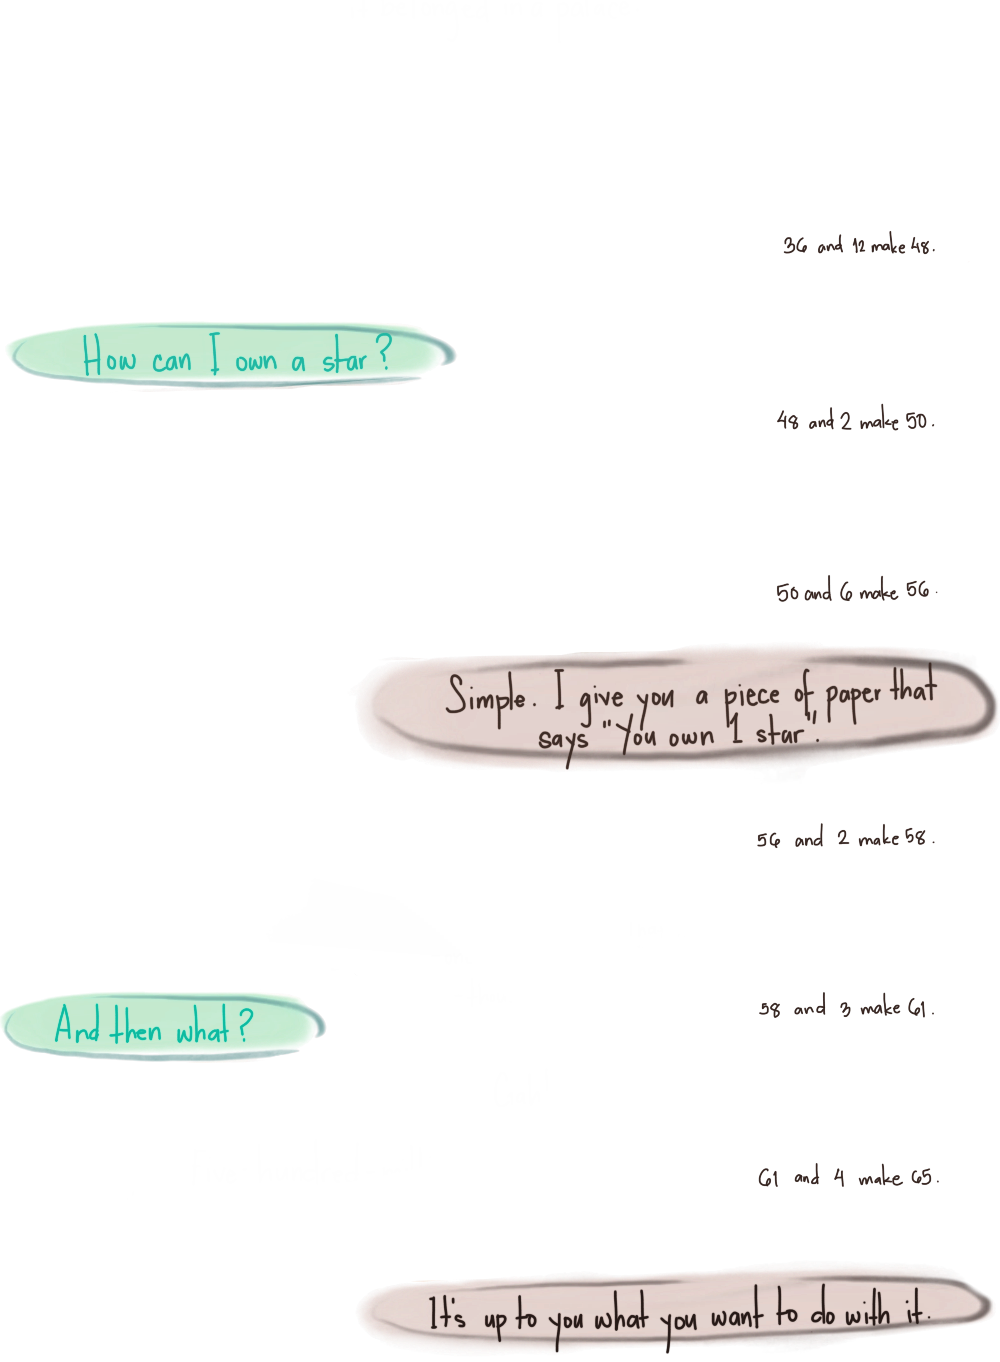 36 and 12 make 48.
How can I own a star?
48 and 2 make 50.
50 and 6 make 56.
Simple. I give you a piece of paper that
says "You own 1 star".
56 and 2 make 58.
And then what?
58 and 3 make 61.
61 and 4 make 65.
It's up to you what you want to do with it.